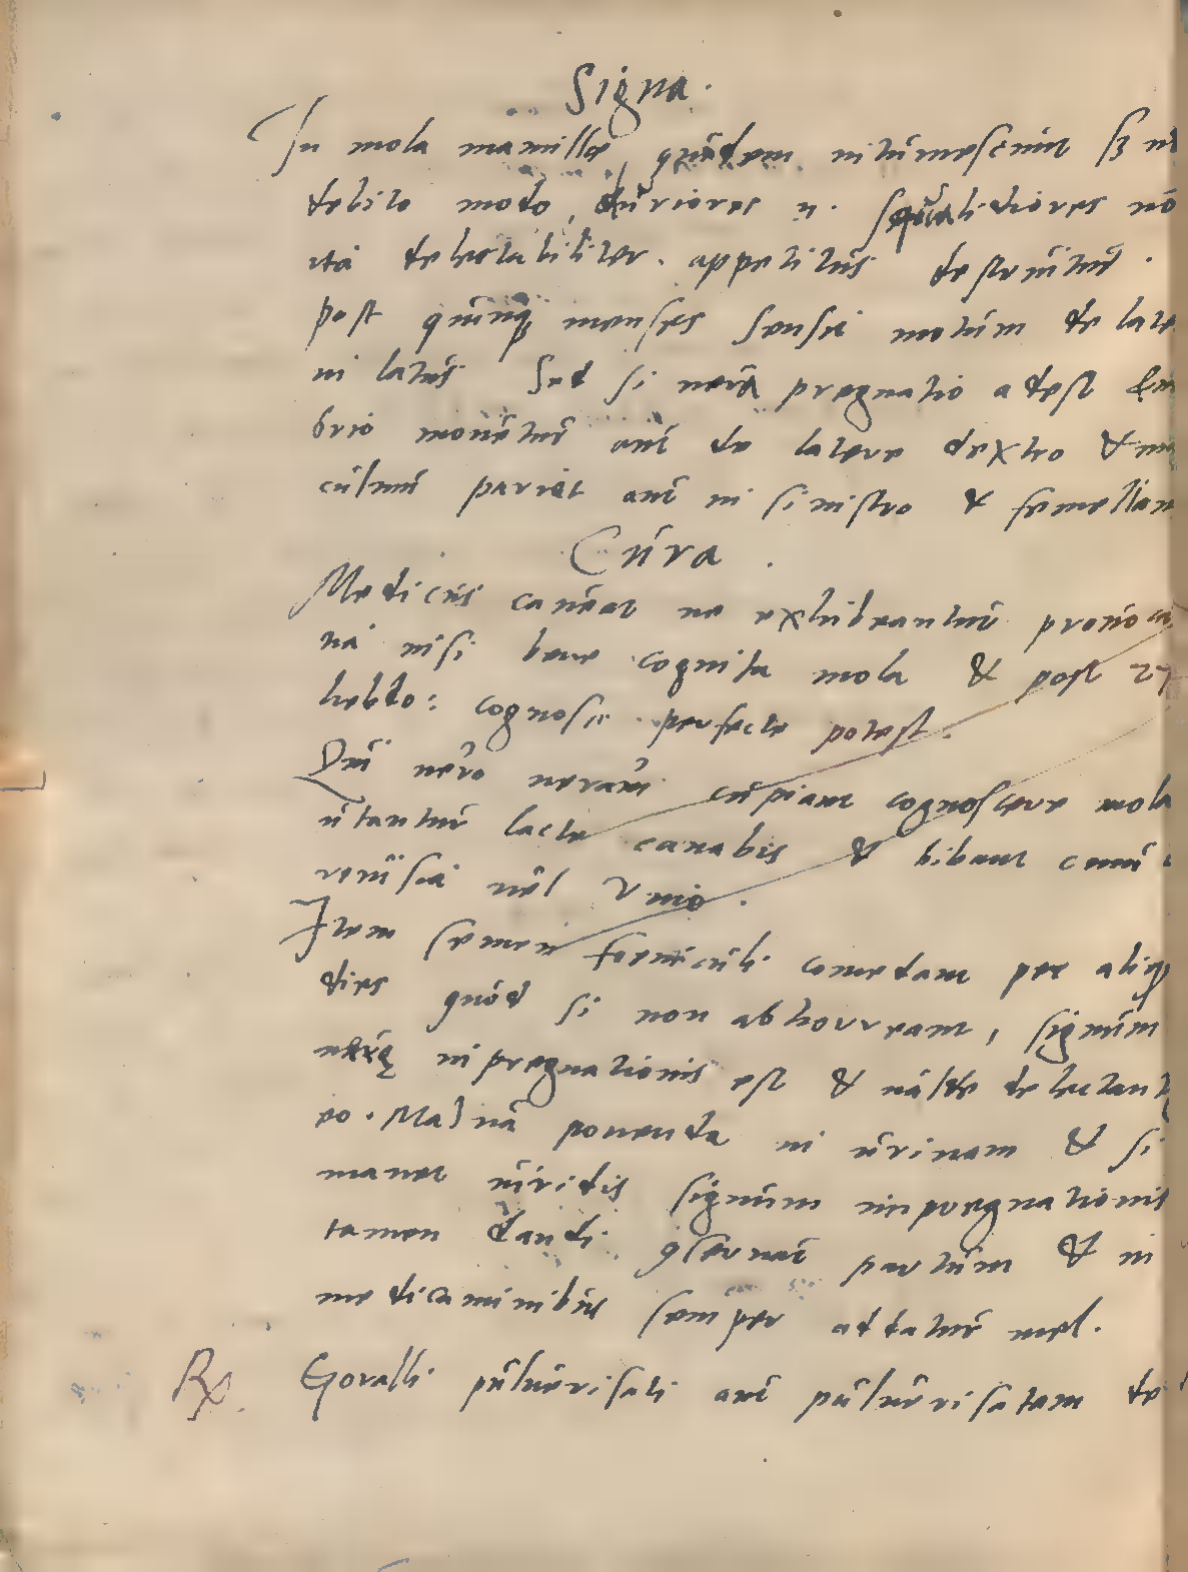 Signa.
In mola mamillę quidem intumescunt sz n
debito modo, duriores n. squalidiores nō
ita delectabiliter. appetitus destruitur.
post quinq menses sensit motum de late
in latus Sed si vera pregnatio adest Em
brio mouetur aut de latere dextro & ma
culum pariet aut in sinistro & femellam
Cura.
Medicus caueat ne exhibeantur prouoca
tia nisi bene cognita mola & post 27
hebdo: cognosci perfecte potest.
Qui uero ueram cupiant cognoscere mola
utantur lacte canabis & bibant cum c
reuisia uel Vino.
Item semen foeniculi comedant per aliq
dies quod si non abhorreant, signum
uerę inpregnationis est & ualde delectant
eo. Maluā ponenda in urinam & si
manet uiridis signum impregnationis
tamen dandi qseruat partum & in
medicaminibus semper addatur mel.
Rx. Coralli puluerisati aut puluerisatam de